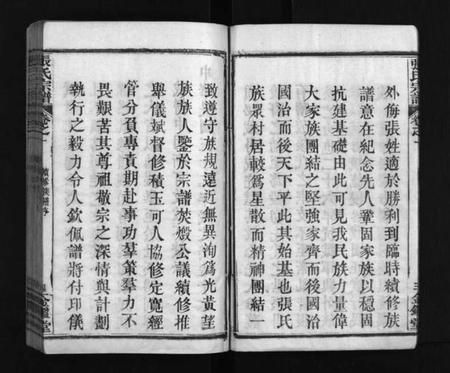 外侮張姓適於勝利到臨時續修族
譜意在紀念先人鞏固家族以穩固
抗建基礎由此可見我民族力量偉
大家族團結之堅強家齊而後國治
國治而後天下平此其始基也張氏
族眾村居較為星散而精神團結一
致遵守族規遠近無異洵為光黃望
族族人鑒於宗譜焚燬公議續修推
舉儀斌督修積玉可人協修定寬經
管分負專責期赴事功羣策羣力不
畏艱苦其尊祖敬宗之深情與計劃
執行之毅力令人欽佩譜將付印儀
張氏宗譜
卷之一
金鑑堂